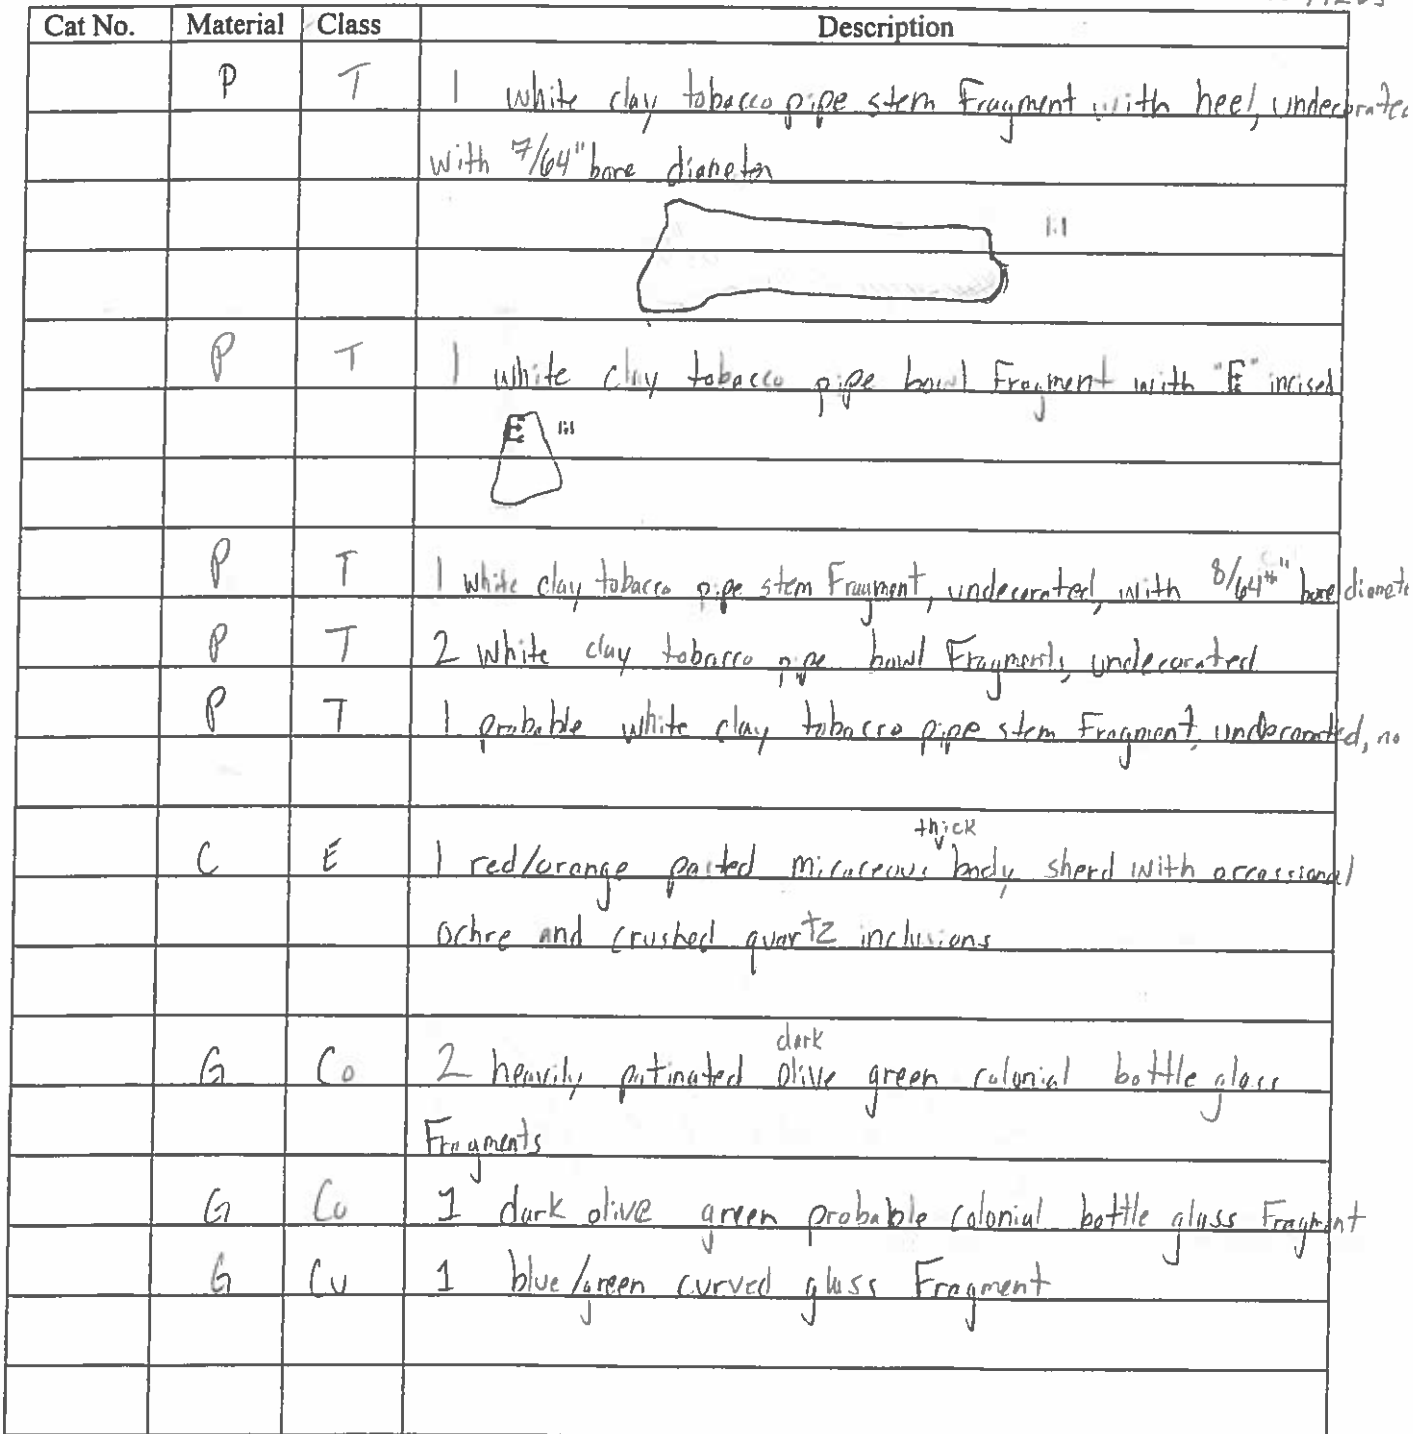 Cat No. Material Class Description
P T 1 white clay tobacco pipe stem Fragment with heel, undecorated
with 7/64" bore diameter
1:1
P T 1 white clay tobacco pipe bowl Fragment with "E" incised
E 1:1
P T 1 white clay tobacco pipe stem Fragment, undecorated, with 8/64th" bore diamete
P T 2 white clay tobacco pipe bowl Fragments, undecorated
P T 1 probable white clay tobacco pipe stem Fragment, undecorated, no
thick
C E 1 red/orange pasted micaceous body sherd with occassional
ochre and crushed quartz inclusions
dark
G Co 2 heavily patinated olive green colonial bottle glass
Fragments
G Co 1 dark olive green probable colonial bottle glass Fragment
G Cu 1 blue/green curved glass Fragment